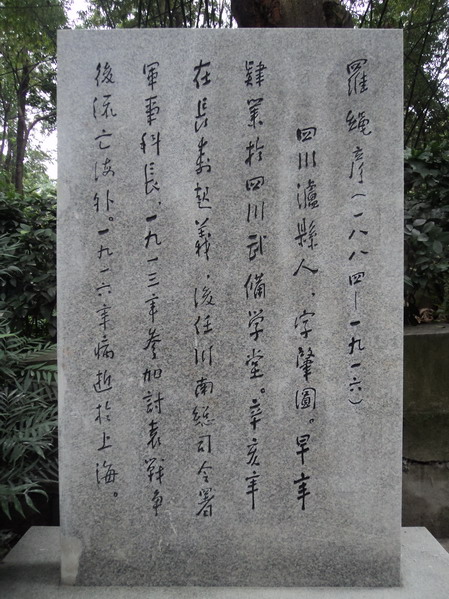 羅绳彦(一八八四—一九一六)
四川瀘縣人、字肇圖。早年
肄業扵四川武備学堂。辛亥年
在長壽起義，後任川南総司令署
軍事科長、一九一三年參加討袁戰争
後流亡海外。一九一六年病逝扵上海。